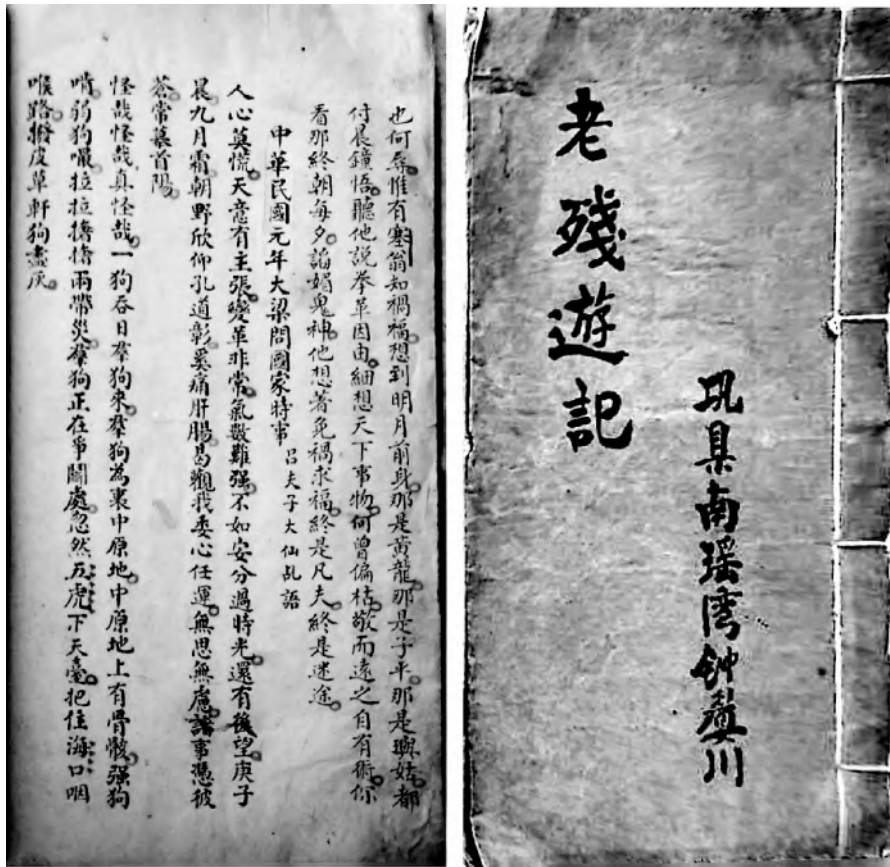 也何辱惟有塞翁知禍福想到明月前身那是黃龍那是子平那是璵姑都
付晨鐘悟聽他說拳革因由細想天下事物何曾偏枯敬而遠之自有術你
看那終朝每夕諂媚鬼神他想著免禍求福終是凡夫終是迷途
中華民國元年大梁問國家時事 呂夫子大仙乩語
人心莫慌天意有主張變革非常氣數難强不如安分過時光還有後望庚子
晨九月霜朝野欣仰孔道彰奚痛肝腸曷觀我委心任運無思無慮諸事憑彼
蒼常慕首陽
怪哉怪哉真怪哉一狗吞日羣狗來羣狗為裏中原地中原地上有骨骸强狗
啃弱狗嘬拉拉擠擠兩帶災羣狗正在爭鬭處忽然五虎下天臺把住海口咽
喉路撥皮草軒狗盡灰
老殘遊記
巩县南瑶湾钟蓂川